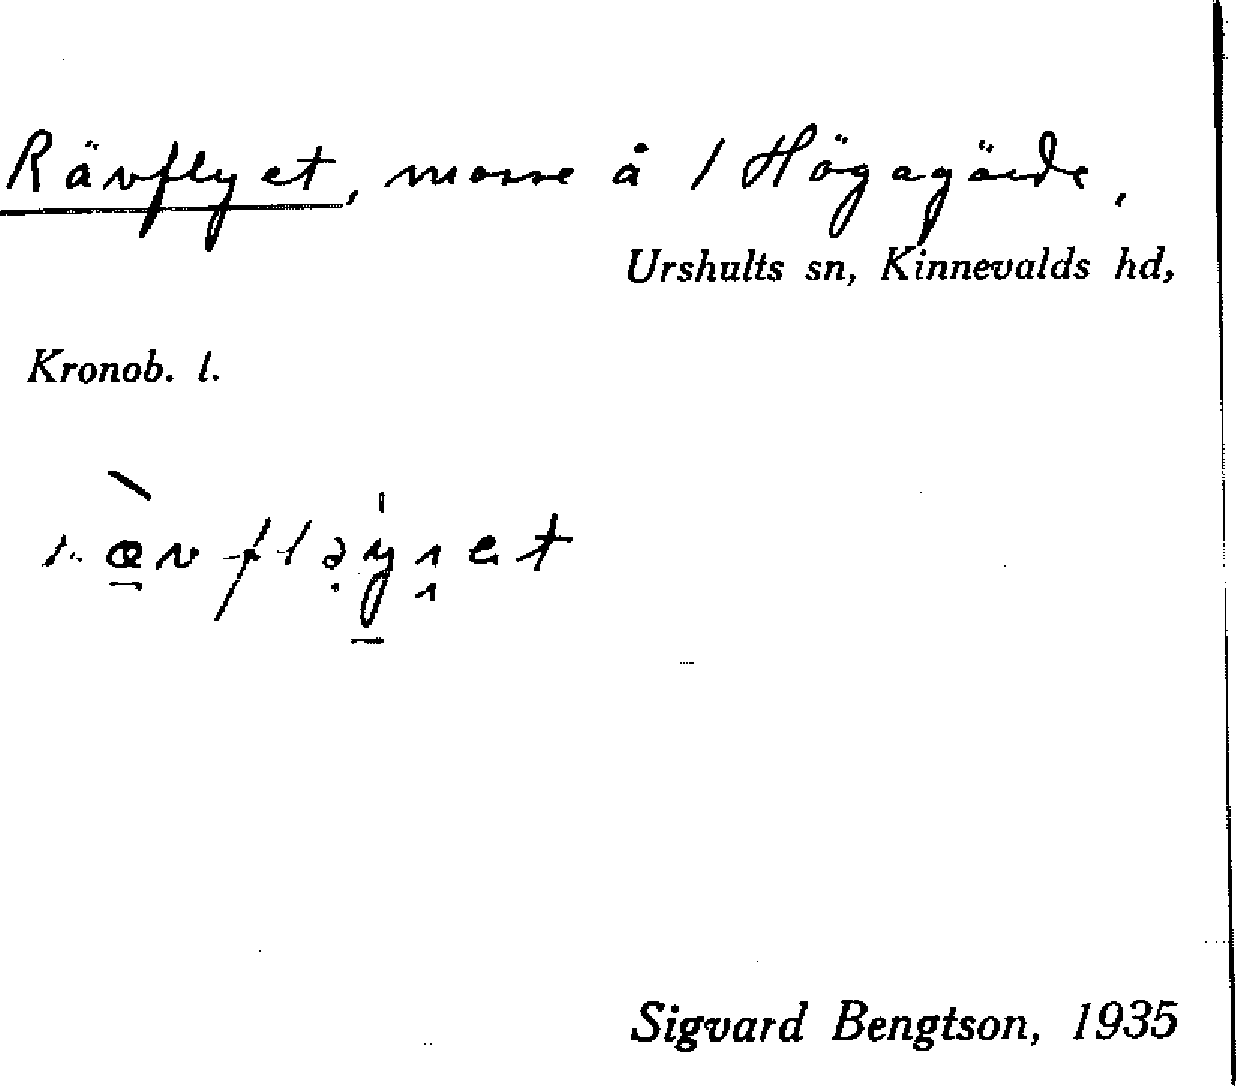 Rävflyet, mosse å 1 Högagärde,
Urshults sn, Kinnevalds hd,
Kronob. l.
Sigvard Bengtson, 1935